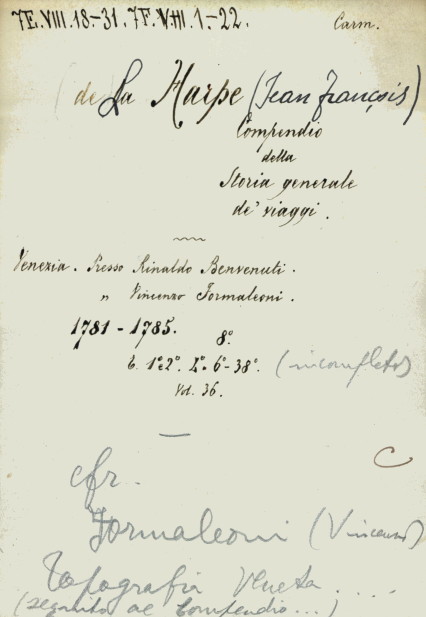 7E.VIII.18-31. 7F.VIII.1-22. Carm.
(de La Harpe (Jean François)
Compendio
della
Storia generale
de' viaggi.
Venezia. Presso Rinaldo Benvenuti.
" Vincenzo Formaleoni.
1781 - 1785. 8°.
t. 1° e 2°. 6°-38°. (incompleto)
Vol. 36.
C
cfr.
Formaleoni (Vincenzo)
Topografia Veneta ....
(seguito al Compendio...)